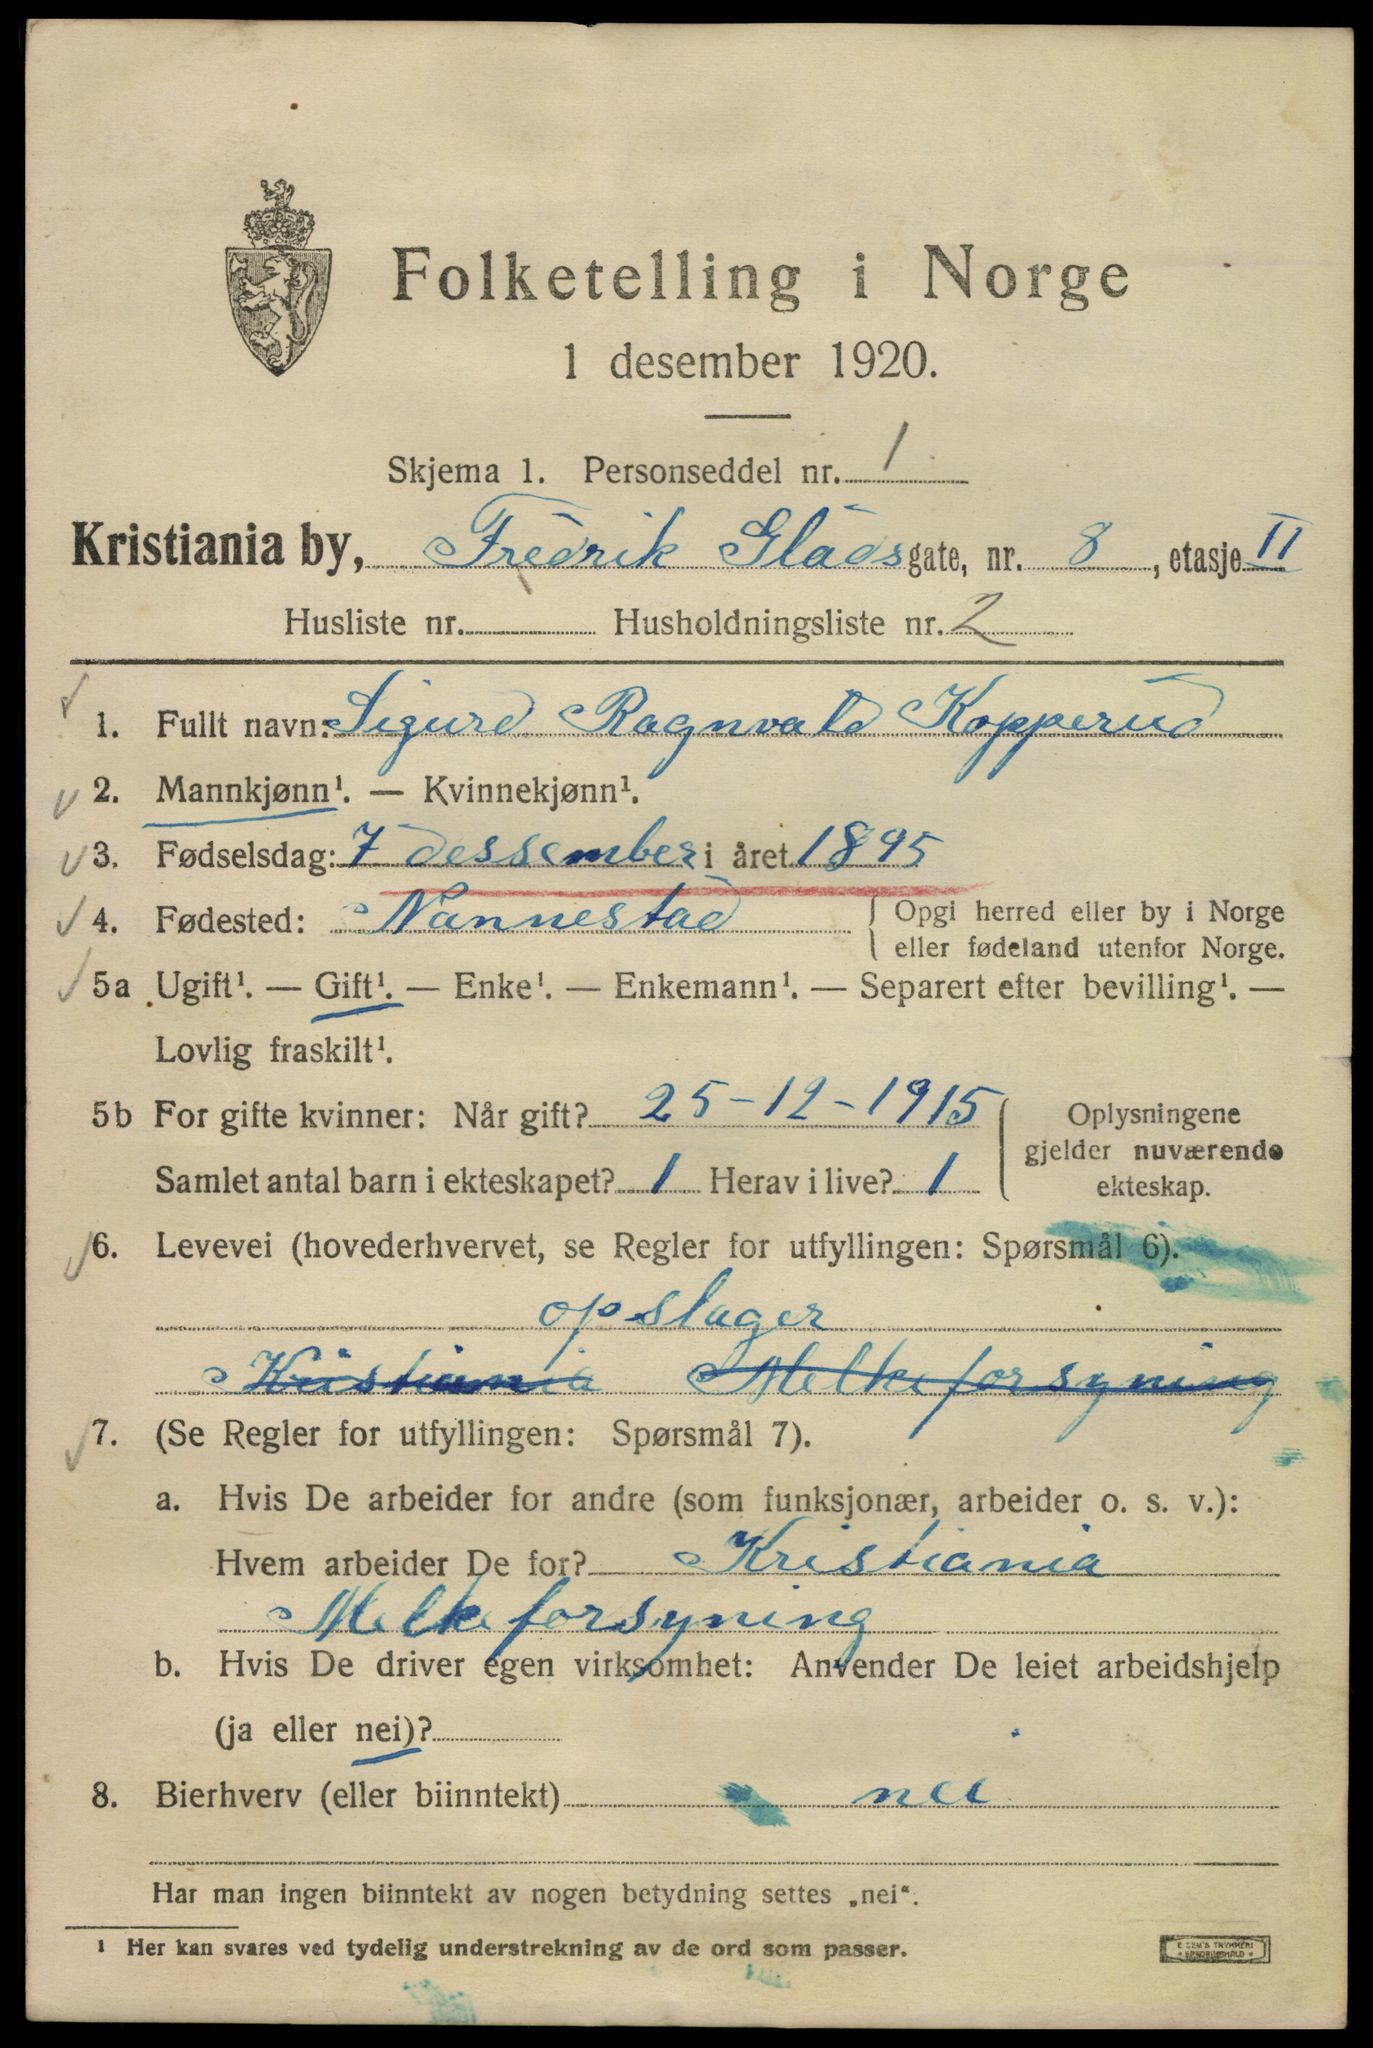 Folketelling i Norge
1 desember 1920.
Skjema 1. Personseddel nr. 1
Kristiania by, Fredrik Glads gate, nr. 8, etasje II
Husliste nr. Husholdningsliste nr. 2
1. Fullt navn: Sigurd Ragnvald Kopperud
2. Mannkjønn¹. — Kvinnekjønn¹.
3. Fødselsdag: 7 dessember i året 1895
4. Fødested: Nannestad { Opgi herred eller by i Norge
eller fødeland utenfor Norge.
5a Ugift¹. — Gift¹. — Enke¹. — Enkemann¹. — Separert efter bevilling¹. —
Lovlig fraskilt¹.
5b For gifte kvinner: Når gift? 25-12-1915 { Oplysningene
gjelder nuværende
Samlet antal barn i ekteskapet? 1 Herav i live? 1 ekteskap.
6. Levevei (hovederhvervet, se Regler for utfyllingen: Spørsmål 6).
opslager
Kristiania Melkeforsyning
7. (Se Regler for utfyllingen: Spørsmål 7).
a. Hvis De arbeider for andre (som funksjonær, arbeider o. s. v.):
Hvem arbeider De for? Kristiania
Melkeforsyning
b. Hvis De driver egen virksomhet: Anvender De leiet arbeidshjelp
(ja eller nei)?
8. Bierhverv (eller biinntekt) nei
Har man ingen biinntekt av nogen betydning settes „nei“.
¹ Her kan svares ved tydelig understrekning av de ord som passer.